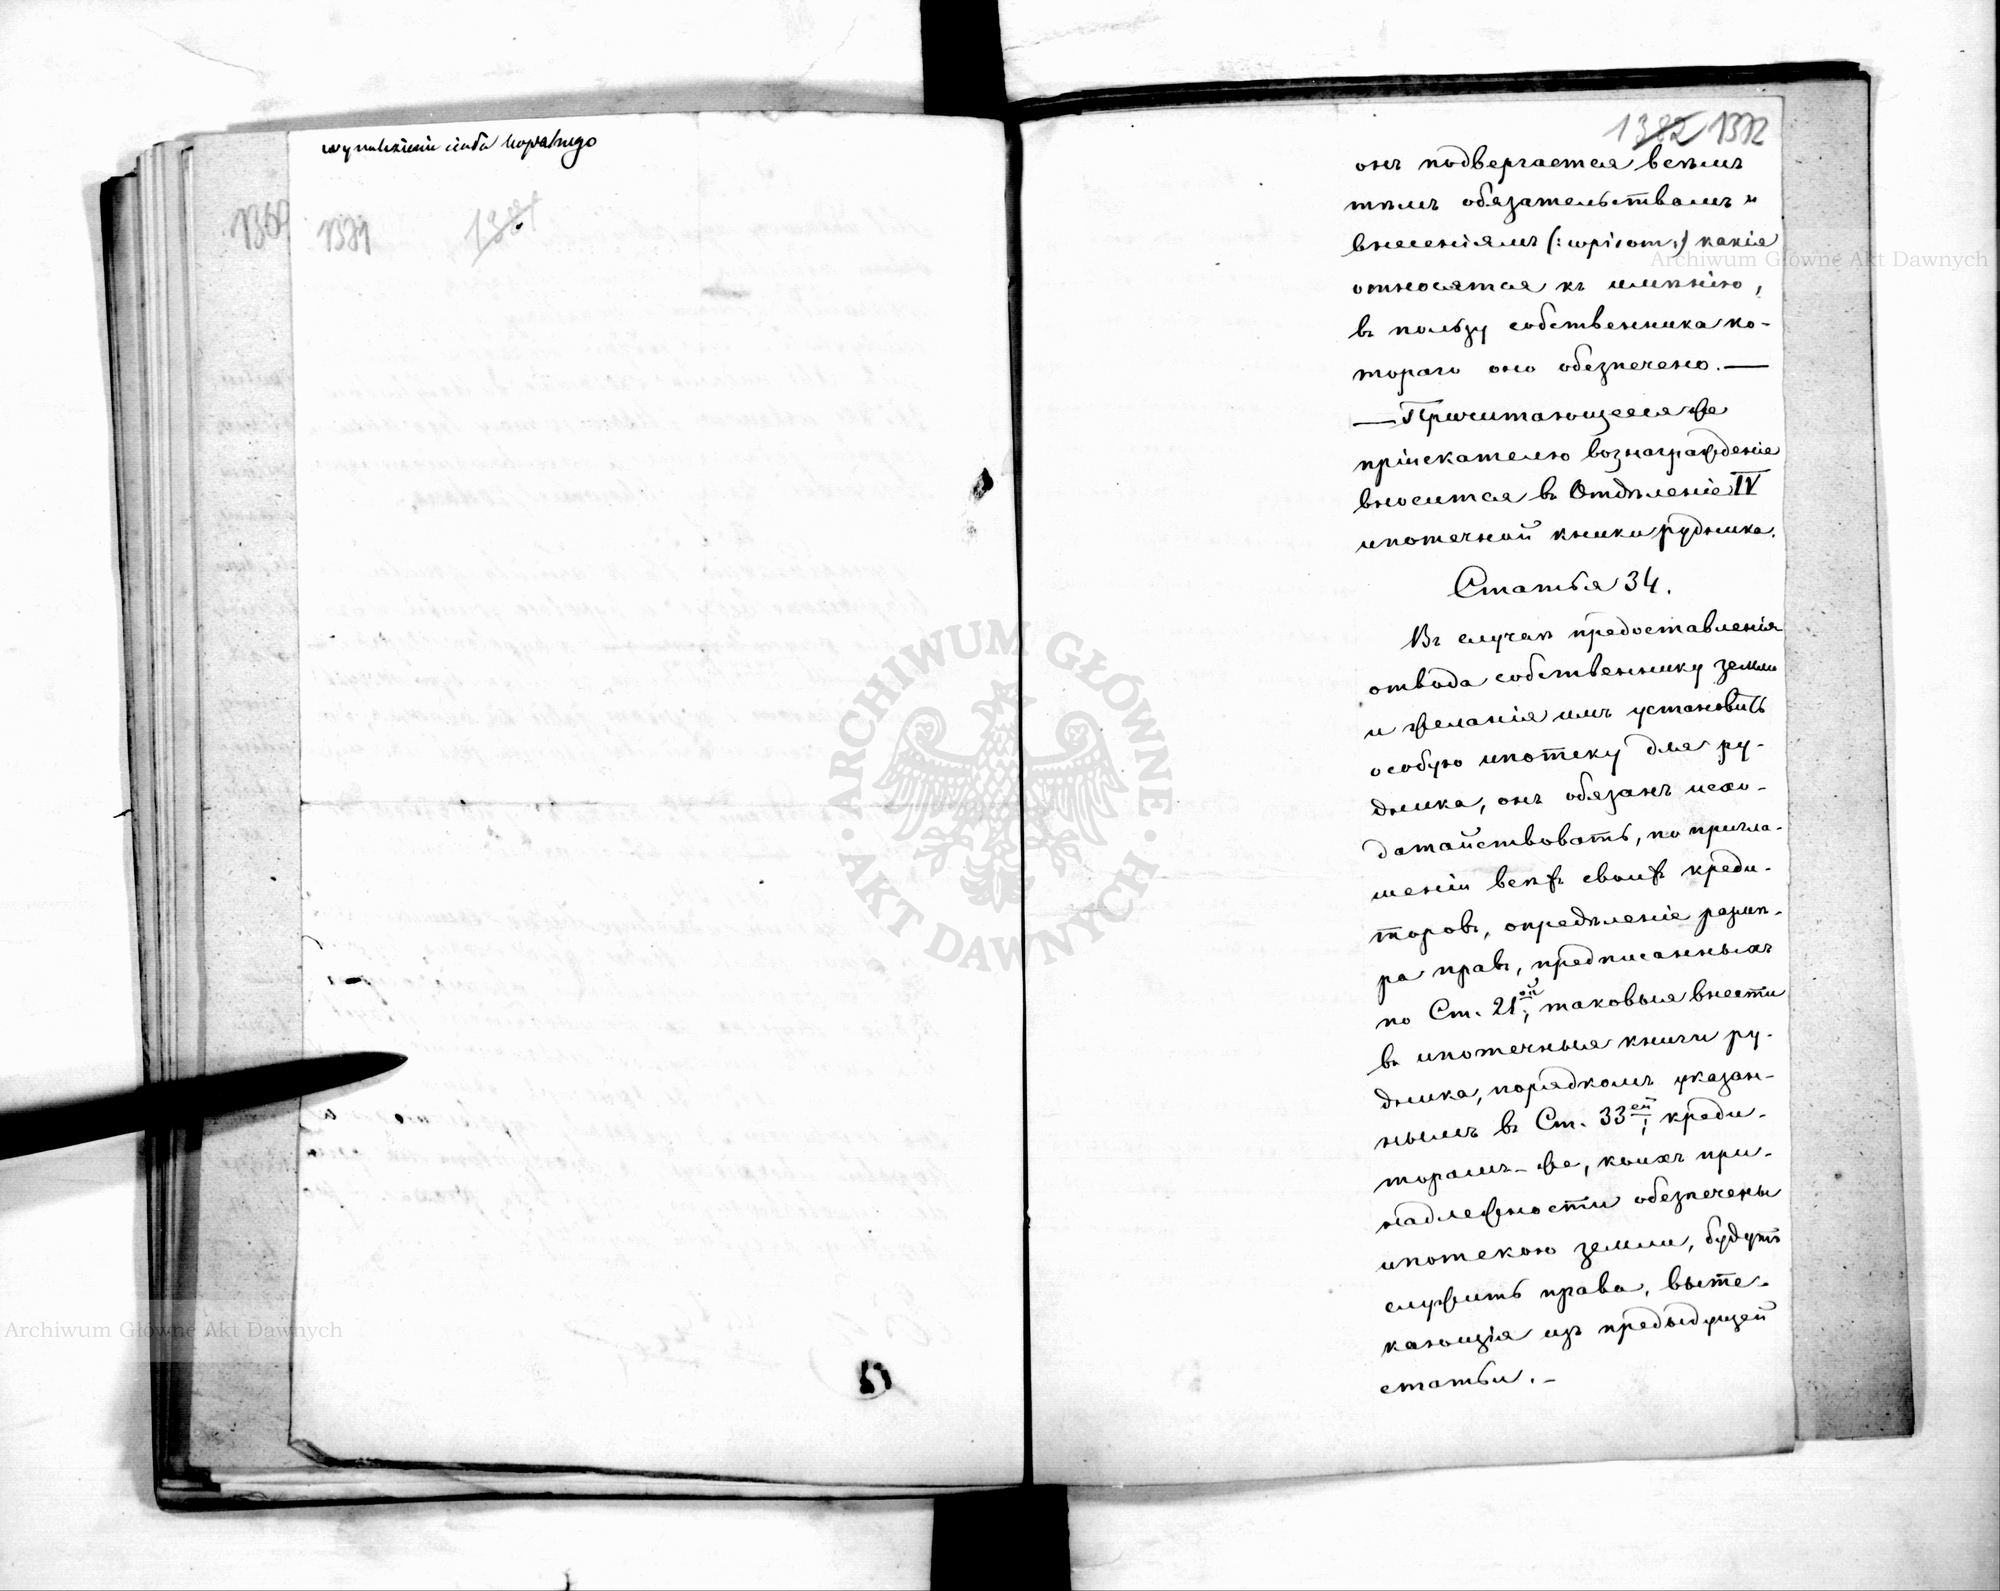 wynalezienie ciała kopalnego
1369 1371 1381
1382 1372
онъ подвергается всѣмъ
тѣмъ обязательствамъ и
внесеніямъ (: wpisom :) какія
относятся къ имѣнію,
въ пользу собственника ко-
тораго оно обезпечено. —
— Причитающееся же
пріискателю вознагражденіе
вносится въ Отдѣленіе IV
ипотечной книги рудника.
Статья 34.
Въ случаѣ предоставленія
отвода собственнику земли
и желанія имъ установить
особую ипотеку для ру-
дника, онъ обязанъ исхо-
датайствовать, по пригла-
шеніи всѣхъ своихъ креди-
торовъ, опредѣленіе размѣ-
ра правъ, предписанныхъ
по Ст. 21ой; таковыя внести
въ ипотечныя книги ру-
дника, порядкомъ указан-
нымъ въ Ст. 33ей; креди-
торамъ-же, коихъ при-
надлежности обезпечены
ипотекою земли, будутъ
служить права, выте-
кающія изъ предыдущей
статьи. –
Archiwum Główne Akt Dawnych
ARCHIWUM GŁÓWNE
AKT DAWNYCH
Archiwum Główne Akt Dawnych